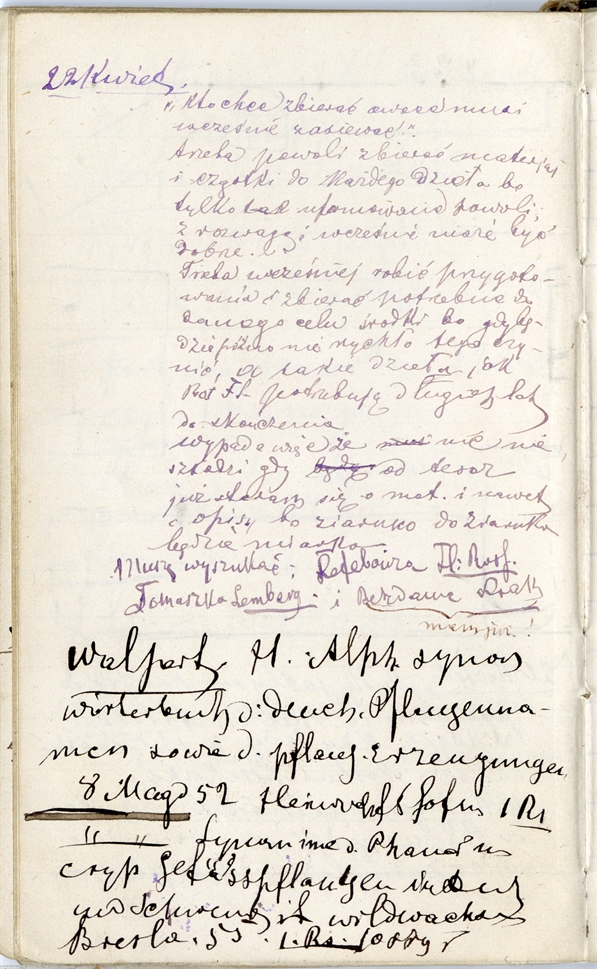 22 Kwiet.
"Kto chce zbierać owoce musi
wcześnie zasiewać!".
trzeba powoli zbierać materjał
i czątki do każdego dzieła bo
tylko tak powoli,
z rozwagą i wcześnie może być
dobre.
Trzeba wcześniej robić przygoto-
wania i zbierać potrzebne do
danego celu środki bo gdy bę-
dzie późno nie rychło tego czy-
nić, a takie dzieła jak
Fl. potrzebują długich lat
do skończenia
wypada więc że nie nie
szkodzi gdy od teraz
już staram się o mat. i nawet
o opisy bo ziarnko do ziarnka
będzie miarka
Muszę wyszukać; Ledeboura Fl: Ross.
Tomaszka Lemberg. i Berdaua Krak
mam już!
Walpert, H. Alph. synon
wörterbuch d: deuch. Pflanzenna-
men sowie d. pflanz. Erzeugungen
8 Magd 52 Heinrichshofen 1 Rs
" " Synonime d. Phaner u
cryp Gefässpflanzen
und wildwachs
Bresla. 55. 1. Rs.